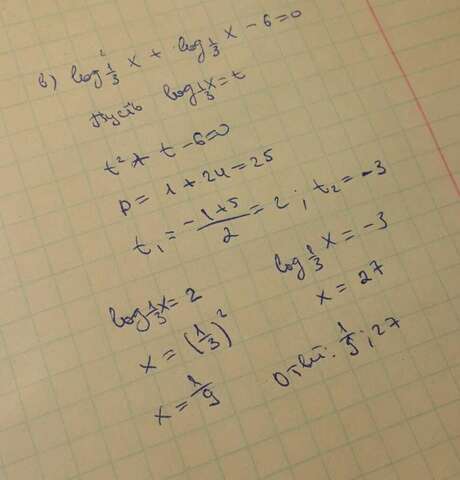 в) log²_{1/3} x + log_{1/3} x - 6 = 0
Пусть log_{1/3} x = t
t² + t - 6 = 0
D = 1 + 24 = 25
t₁ = \frac{-1+5}{2} = 2; t₂ = -3
log_{1/3} x = 2
x = (1/3)²
x = 1/9
log_{1/3} x = -3
x = 27
Ответ: 1/9; 27